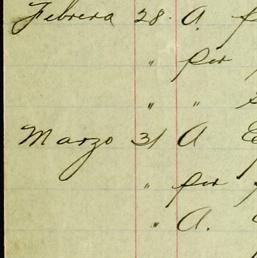 Febrera 28. A.
" per
" "
Marzo 31 A
" per
" A.